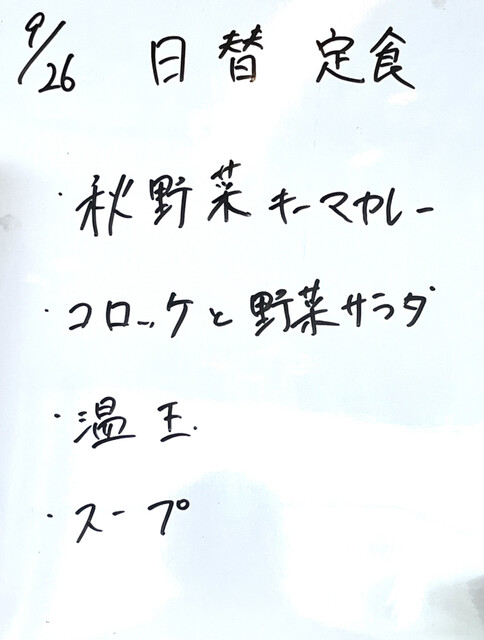 9/26 日替 定食
・秋野菜キーマカレー
・コロッケと野菜サラダ
・温玉
・スープ